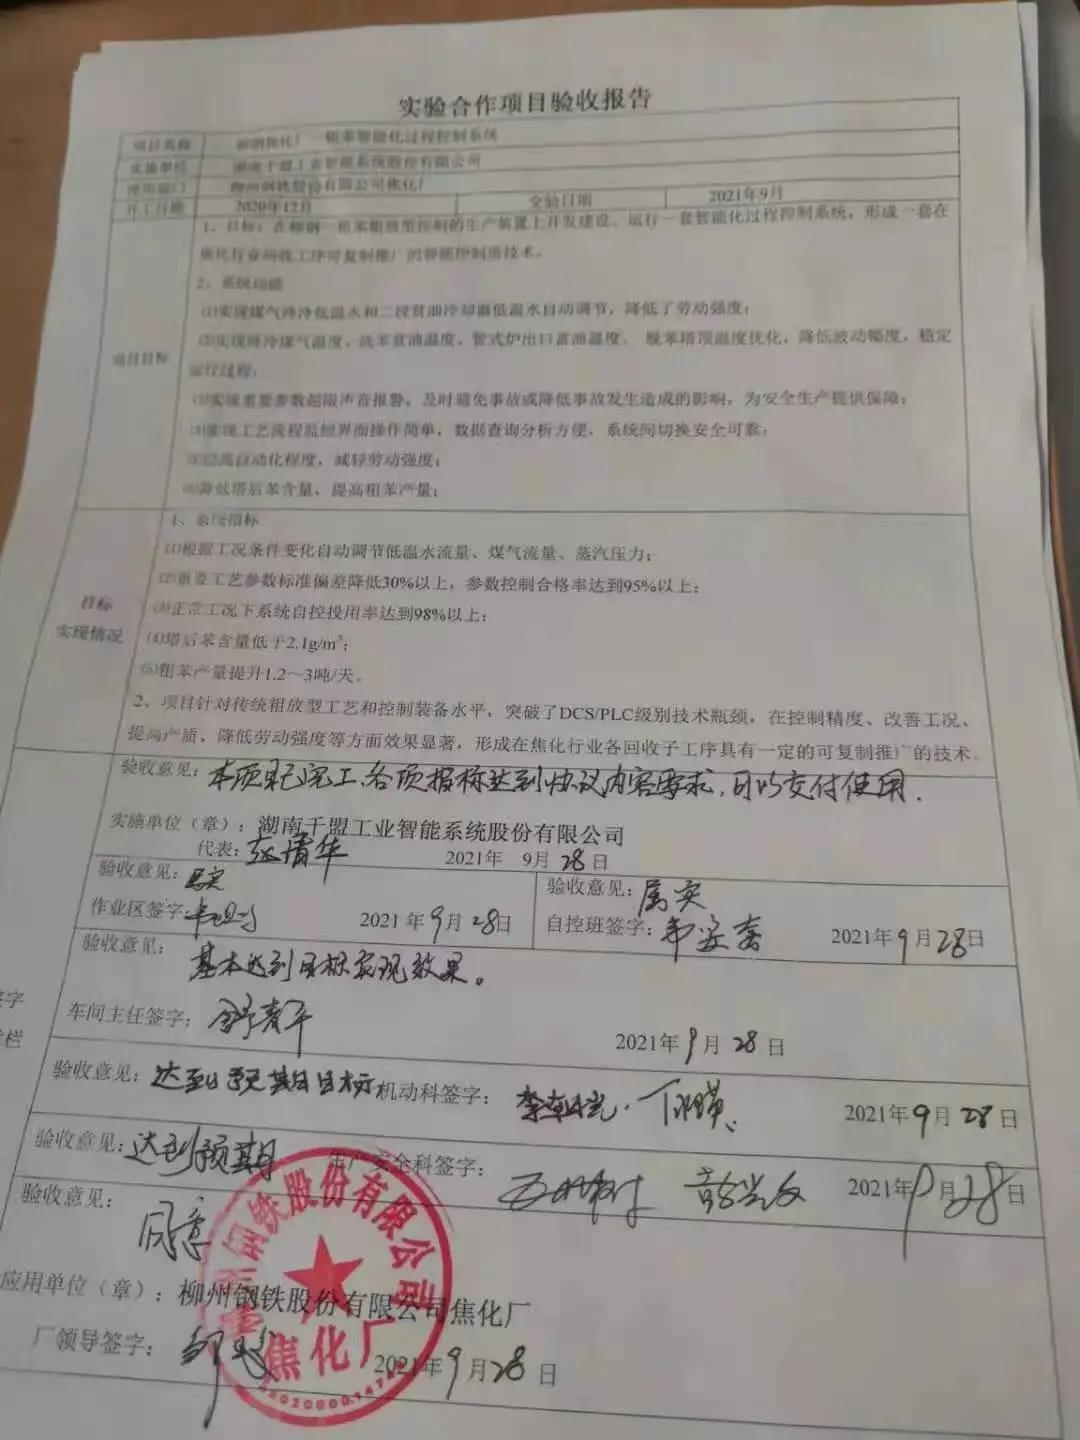 实验合作项目验收报告
项目名称 柳钢焦化厂一粗苯智能化过程控制系统
实施单位 湖南千盟工业智能系统股份有限公司
使用部门 柳州钢铁股份有限公司焦化厂
开工日期 2020年12月 交验日期 2021年9月
项目目标
1、目标:在柳钢一粗苯粗放型控制的生产装置上开发建设、运行一套智能化过程控制系统,形成一套在
焦化行业回收工序可复制推广的智能控制新技术。
2、系统功能
⑴实现煤气终冷低温水和二段贫油冷却器低温水自动调节,降低了劳动强度;
⑵实现终冷煤气温度、洗苯贫油温度、管式炉出口富油温度、脱苯塔顶温度优化,降低波动幅度,稳定
运行过程;
⑶实现重要参数超限声音报警,及时避免事故或降低事故发生造成的影响,为安全生产提供保障;
⑷实现工艺流程监控界面操作简单,数据查询分析方便,系统间切换安全可靠;
⑸提高自动化程度,减轻劳动强度;
⑹降低塔后苯含量,提高粗苯产量;
目标
实现情况
1、系统指标
⑴根据工况条件变化自动调节低温水流量、煤气流量、蒸汽压力;
⑵重要工艺参数标准偏差降低30%以上,参数控制合格率达到95%以上;
⑶正常工况下系统自控投用率达到98%以上;
⑷塔后苯含量低于2.1g/m³;
⑸粗苯产量提升1.2～3吨/天。
2、项目针对传统粗放型工艺和控制装备水平,突破了DCS/PLC级别技术瓶颈,在控制精度、改善工况、
提高产质、降低劳动强度等方面效果显著,形成在焦化行业各回收子工序具有一定的可复制推广的技术。
验收意见:本项目已完工、各项指标达到协议内容要求,可以交付使用.
实施单位(章):湖南千盟工业智能系统股份有限公司
代表:赵清华 2021年 9月28日
验收意见:属实
作业区签字: 2021年9月28日
验收意见:属实
自控班签字: 2021年9月28日
签字
栏
验收意见:基本达到目标实现效果。
车间主任签字: 2021年9月28日
验收意见:达到预期目标 机动科签字: 2021年9月28日
验收意见:达到预期 生产安全科签字: 2021年9月28日
验收意见:同意
应用单位(章):柳州钢铁股份有限公司焦化厂
厂领导签字: 2021年9月28日
钢铁股份有限公司
焦化厂